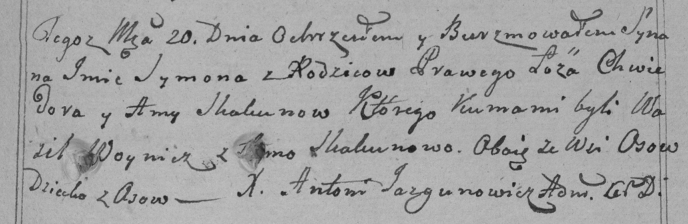 Tegoż Mca 20. Dnia Ochrzciłem y Bierzmowałem Syna
na Imie Symona z Rodzicow Prawego Łoża Chwie
dora y Anny Skakunow Ktorego Kumami byli Wa
zil Woynicz z Skakunowo. Oboie ze Wsi Osow
Dziecko z Osow — X. Antoni Jazgunowicz Adm.